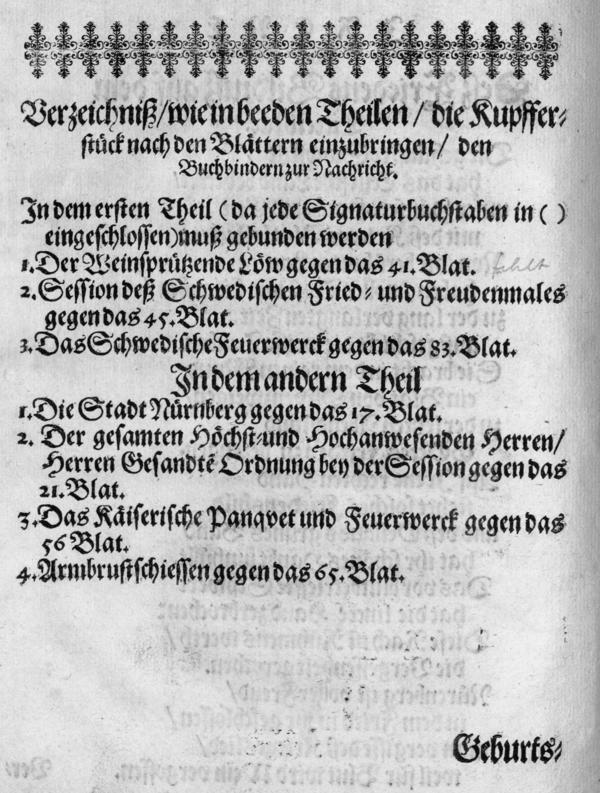 Verzeichniß/wie in beeden Theilen / die Kupffer-
stück nach den Blättern einzubringen / den
Buchbindern zur Nachricht.
In dem ersten Theil (da jede Signaturbuchstaben in ( )
eingeschlossen) muß gebunden werden
1. Der Weinsprützende Löw gegen das 41. Blat. fehlt
2. Session deß Schwedischen Fried- und Freudenmales
gegen das 45. Blat.
3. Das Schwedische Feuerwerck gegen das 83. Blat.
In dem andern Theil
1. Die Stadt Nürnberg gegen das 17. Blat.
2. Der gesamten Höchst- und Hochanwesenden Herren/
Herren Gesandtē Ordnung bey der Session gegen das
21. Blat.
3. Das Käiserische Panqvet und Feuerwerck gegen das
56 Blat.
4. Armbrustschiessen gegen das 65. Blat.
Geburts-